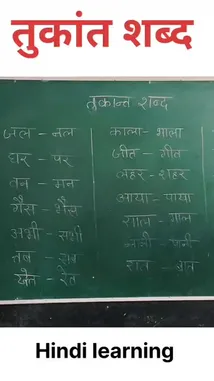 तुकांत शब्द
तुकान्त शब्द
जल - नल
घर - पर
तन - मन
गैस - भैंस
अभी - सभी
तब - सब
खेत - रेत
काला - भाला
जीत - गीत
लहर - शहर
आया - पाया
गाल
रात
Hindi learning